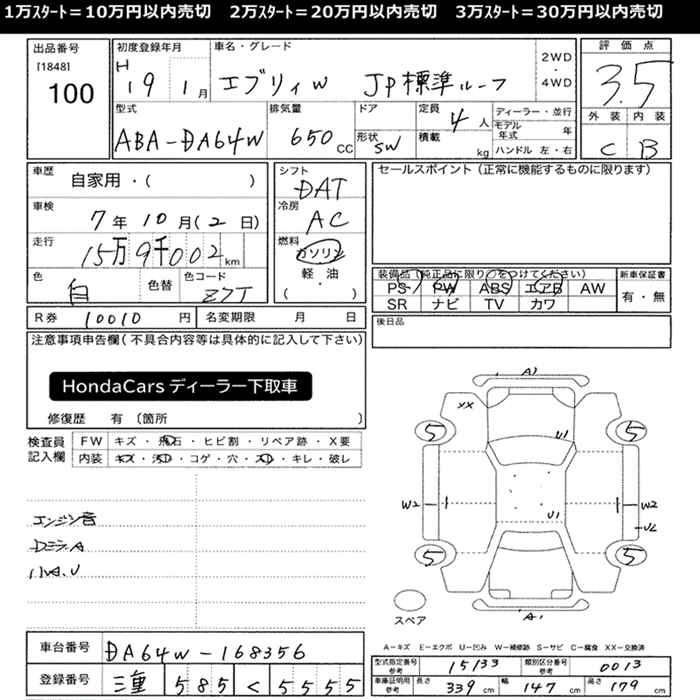 1万スタート＝10万円以内売切　2万スタート＝20万円以内売切　3万スタート＝30万円以内売切
出品番号
[1848]
100
初度登録年月
H 19 1月
車名・グレード
エブリィW JP標準ルーフ
2WD・4WD
評価点
3.5
外装 内装
C B
型式
ABA-DA64W
排気量
650 CC
ドア
形状 SW
定員 4人
積載 kg
ディーラー・並行
モデル年式 年
ハンドル 左・右
車歴
自家用・(　　)
車検
7年10月(2日)
走行
15万9千002km
色
白
色替
色コード
Z7T
シフト
DAT
冷房
AC
燃料
ガソリン
軽・油
(　　)
セールスポイント（正常に機能するものに限ります）
装備品（純正品に限り○をつけてください）
PS PW ABS エアB AW
SR ナビ TV カワ
新車保証書
有・無
R券 10010円
名変期限 月 日
後日品
注意事項申告欄（不具合内容等は具体的に記入して下さい）
HondaCars ディーラー下取車
修復歴 有〔箇所　　〕
検査員記入欄
FW キズ・飛石・ヒビ割・リペア跡・X要
内装 キズ・汚レ・コゲ・穴・スレ・キレ・破レ
エンジン音
小A.U
A1
XX
5 5
U1
W2 W2
U1
U2
5 5
A1
スペア
A－キズ E－エクボ U－凹み W－補修跡 S－サビ C－腐食 XX－交換済
車台番号 DA64W-168356
登録番号 三重 585 く 5555
型式指定番号 参考 15133
類別区分番号 参考 0013
車庫証明用 参考 長さ 339cm 幅 147cm 高さ 179cm